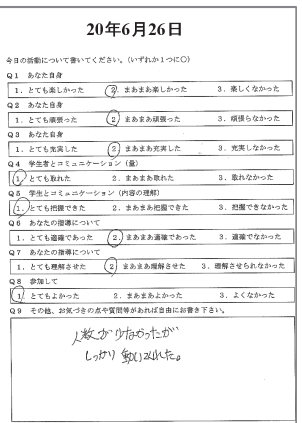 20年6月26日
今日の活動について書いてください。(いずれか1つに○)
Q1 あなた自身
1．とても楽しかった 2．まあまあ楽しかった 3．楽しくなかった
Q2 あなた自身
1．とても頑張った 2．まあまあ頑張った 3．頑張らなかった
Q3 あなた自身
1．とても充実した 2．まあまあ充実した 3．充実しなかった
Q4 学生者とコミュニケーション(量)
1．とても取れた 2．まあまあ取れた 3．取れなかった
Q5 学生とコミュニケーション(内容の理解)
1．とても把握できた 2．まあまあ把握できた 3．把握できなかった
Q6 あなたの指導について
1．とても適確であった 2．まあまあ適確であった 3．適確でなかった
Q7 あなたの指導について
1．とても理解させた 2．まあまあ理解させた 3．理解させられなかった
Q8 参加して
1．とてもよかった 2．まあまあよかった 3．よくなかった
Q9 その他、お気づきの点や質問等があれば自由にお書き下さい。
人数が少なかったが
しっかり動いてくれた。